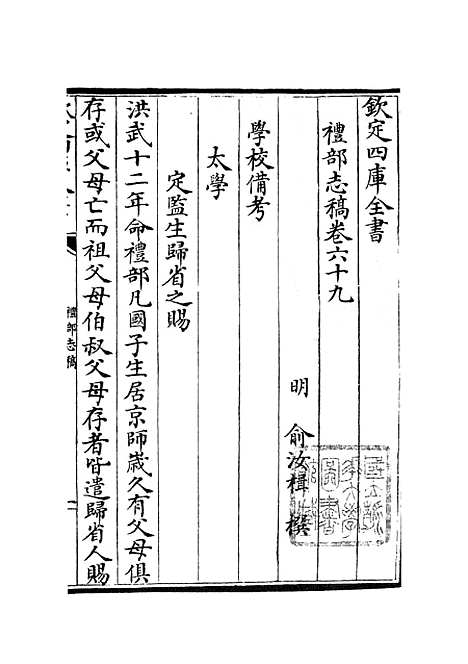 欽定四庫全書
禮部志稿卷六十九
明 俞汝楫 撰
學校備考
太學
定監生歸省之賜
洪武十二年命禮部凡國子生居京師嵗久有父母俱
存或父母亡而祖父母伯叔父母存者皆遣歸省人賜
禮部志稿